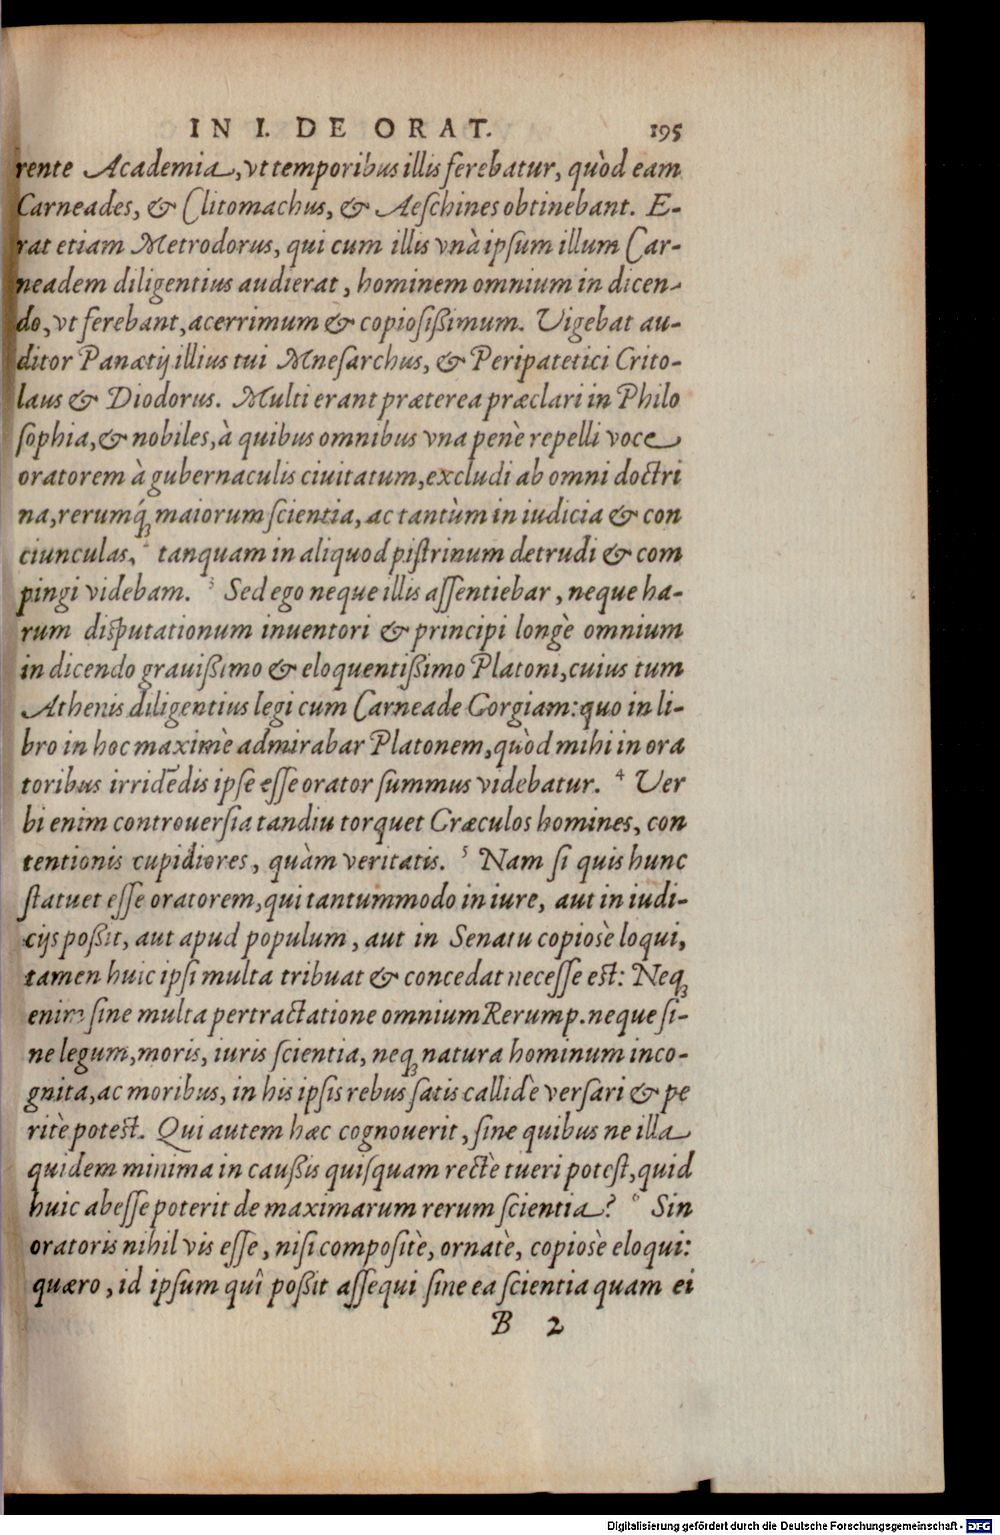 IN I. DE ORAT. 195
rente Academia, vt temporibus illis ferebatur, quòd eam
Carneades, & Clitomachus, & Aeſchines obtinebant. E-
rat etiam Metrodorus, qui cum illis vnà ipſum illum Car-
neadem diligentius audierat, hominem omnium in dicen-
do, vt ferebant, acerrimum & copioſißimum. Vigebat au-
ditor Panætij illius tui Mneſarchus, & Peripatetici Crito-
laus & Diodorus. Multi erant præterea præclari in Philo
ſophia, & nobiles, à quibus omnibus vna penè repelli voce
oratorem à gubernaculis ciuitatum, excludi ab omni doctri
na, rerumq́ꝫ maiorum ſcientia, ac tantùm in iudicia & con
ciunculas, 2 tanquam in aliquod piſtrinum detrudi & com
pingi videbam. 3 Sed ego neque illis aſſentiebar, neque ha-
rum diſputationum inuentori & principi longè omnium
in dicendo grauißimo & eloquentißimo Platoni, cuius tum
Athenis diligentius legi cum Carneade Gorgiam: quo in li-
bro in hoc maximè admirabar Platonem, quòd mihi in ora
toribus irridẽdis ipſe eſſe orator ſummus videbatur. 4 Ver
bi enim controuerſia tandiu torquet Græculos homines, con
tentionis cupidiores, quàm veritatis. 5 Nam ſi quis hunc
ſtatuet eſſe oratorem, qui tantummodo in iure, aut in iudi-
cijs poßit, aut apud populum, aut in Senatu copioſè loqui,
tamen huic ipſi multa tribuat & concedat neceſſe est: Neqꝫ
enim ſine multa pertractatione omnium Rerump. neque ſi-
ne legum, moris, iuris ſcientia, neqꝫ natura hominum inco-
gnita, ac moribus, in his ipſis rebus ſatis callidè verſari & pe
ritè potest. Qui autem hæc cognouerit, ſine quibus ne illa
quidem minima in caußis quiſquam rectè tueri poteſt, quid
huic abeſſe poterit de maximarum rerum ſcientia? 6 Sin
oratoris nihil vis eſſe, niſi compoſitè, ornatè, copioſè eloqui:
quæro, id ipſum quî poßit aſſequi ſine ea ſcientia quam ei
B 2
Digitalisierung gefördert durch die Deutsche Forschungsgemeinschaft - DFG